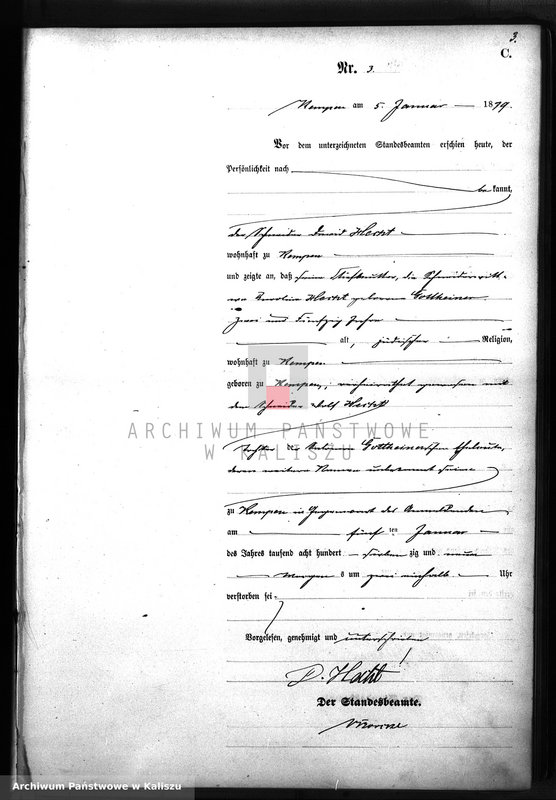 3.
C.
Nr. 3.
Kempen am 5. Januar 1879.
Vor dem unterzeichneten Standesbeamten erschien heute, der
Persönlichkeit nach
be kannt,
der Schneider David
wohnhaft zu Kempen
und zeigte an, daß seine Stiefmutter, die Schneiderwitt-
we geborene Gottheiner
zwei und Fünfzig Jahre
alt, jüdischer Religion,
wohnhaft zu Kempen
geboren zu Kempen, verheirathet gewesen mit
dem Schneider
ARCHIWUM PAŃSTWOWE
W KALISZU
Tochter der Gottheinerschen Eheleute,
deren weitere Namen unbekannt
zu Kempen in Gegenwart des Anmeldenden
am fünf ten Januar
des Jahres tausend acht hundert sieben zig und neun
Morgens um zwei einhalb Uhr
verstorben sei.
Vorgelesen, genehmigt und unterschrieben
D.
Der Standesbeamte.
Archiwum Państwowe w Kaliszu